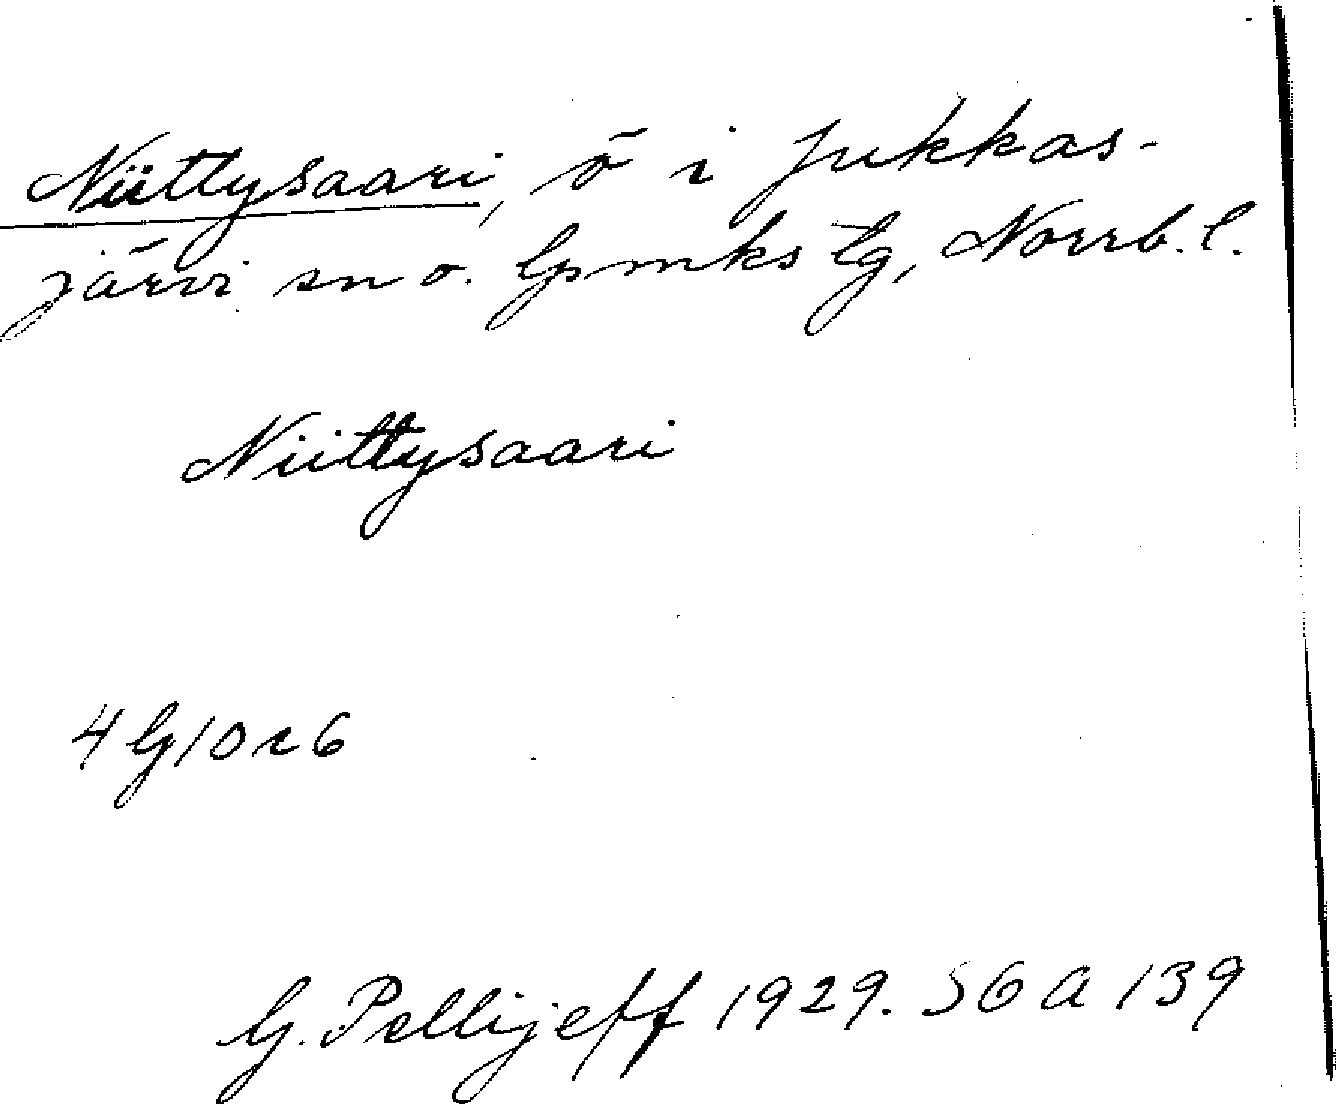 Niittysaari, ö i Jukkas-
järvi sn o. lpmks lg, Norrb. l.
Niittysaari
4 G 10 c 6
G. Pellijeff 1929. SGA 139